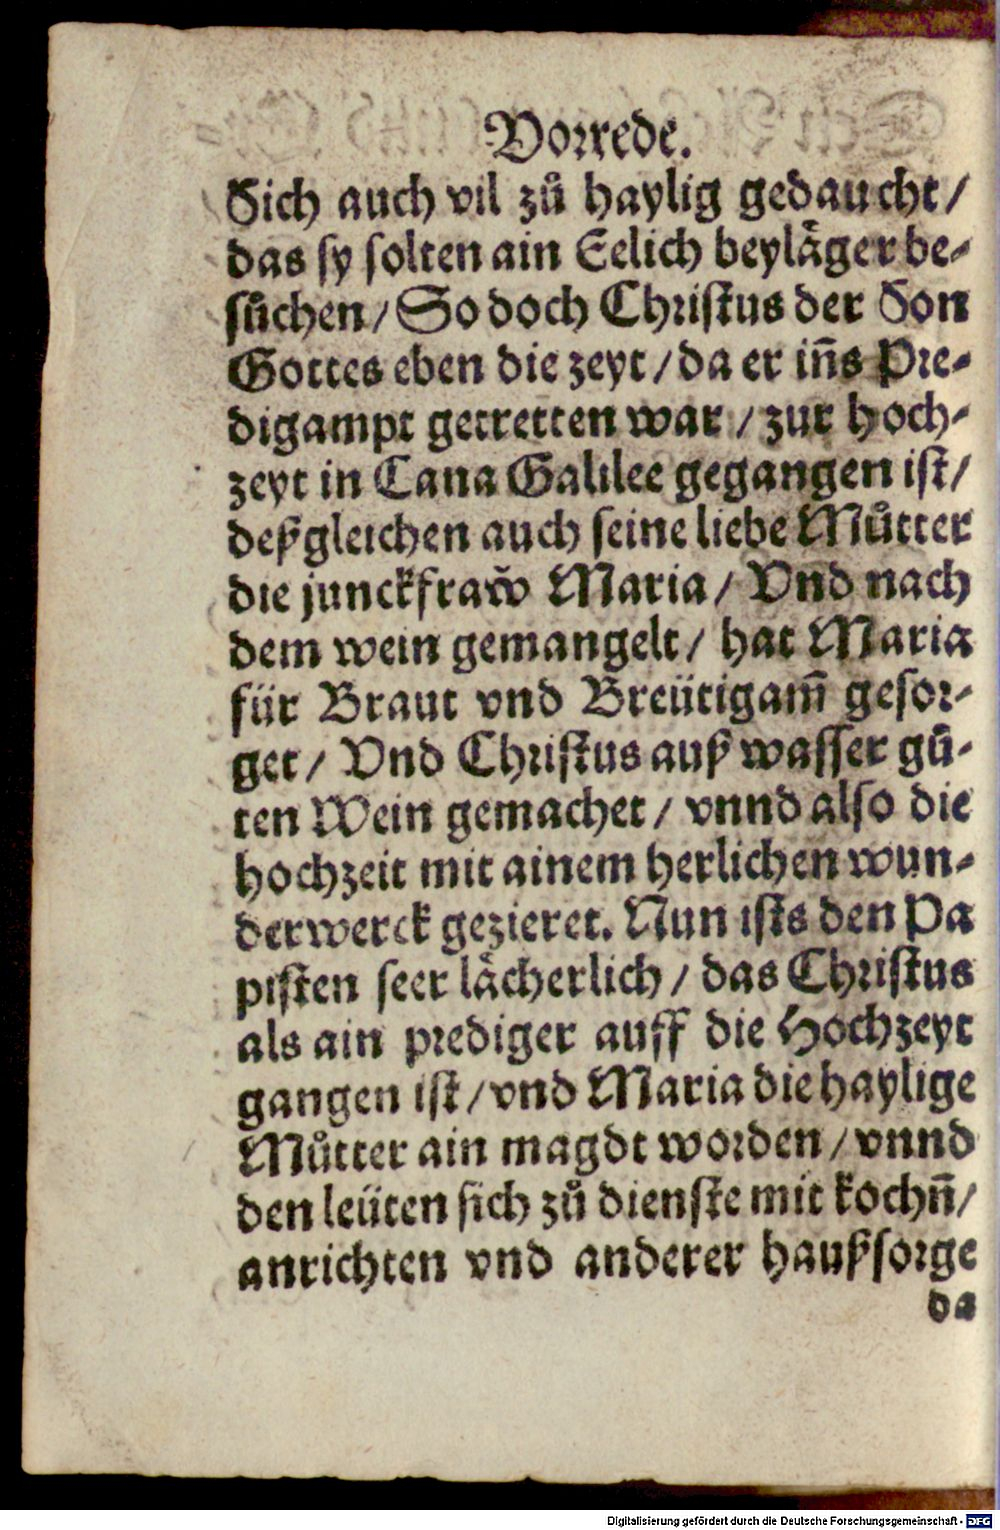 Vorrede.
Sich auch vil zů haylig gedaucht/
das sy solten ain Eelich beyläger be-
sůchen/ So doch Christus der Son
Gottes eben die zeyt/ da er iñs Pre-
digampt getretten war/ zur hoch-
zeyt in Cana Galilee gegangen ist/
deßgleichen auch seine liebe Můtter
die junckfraw̃ Maria/ Vnd nach
dem wein gemangelt/ hat Maria
für Braut vnd Breütigam̃ gesor-
get/ Vnd Christus auß wasser gů-
ten Wein gemachet/ vnnd also die
hochzeit mit ainem herlichen wun-
derwerck gezieret. Nun ists den Pa
pisten seer lächerlich/ das Christus
als ain prediger auff die Hochzeyt
gangen ist/ vnd Maria die haylige
Můtter ain magdt worden/ vnnd
den leüten sich zů dienste mit kochñ/
anrichten vnd anderer haußsorge
da
Digitalisierung gefördert durch die Deutsche Forschungsgemeinschaft - DFG